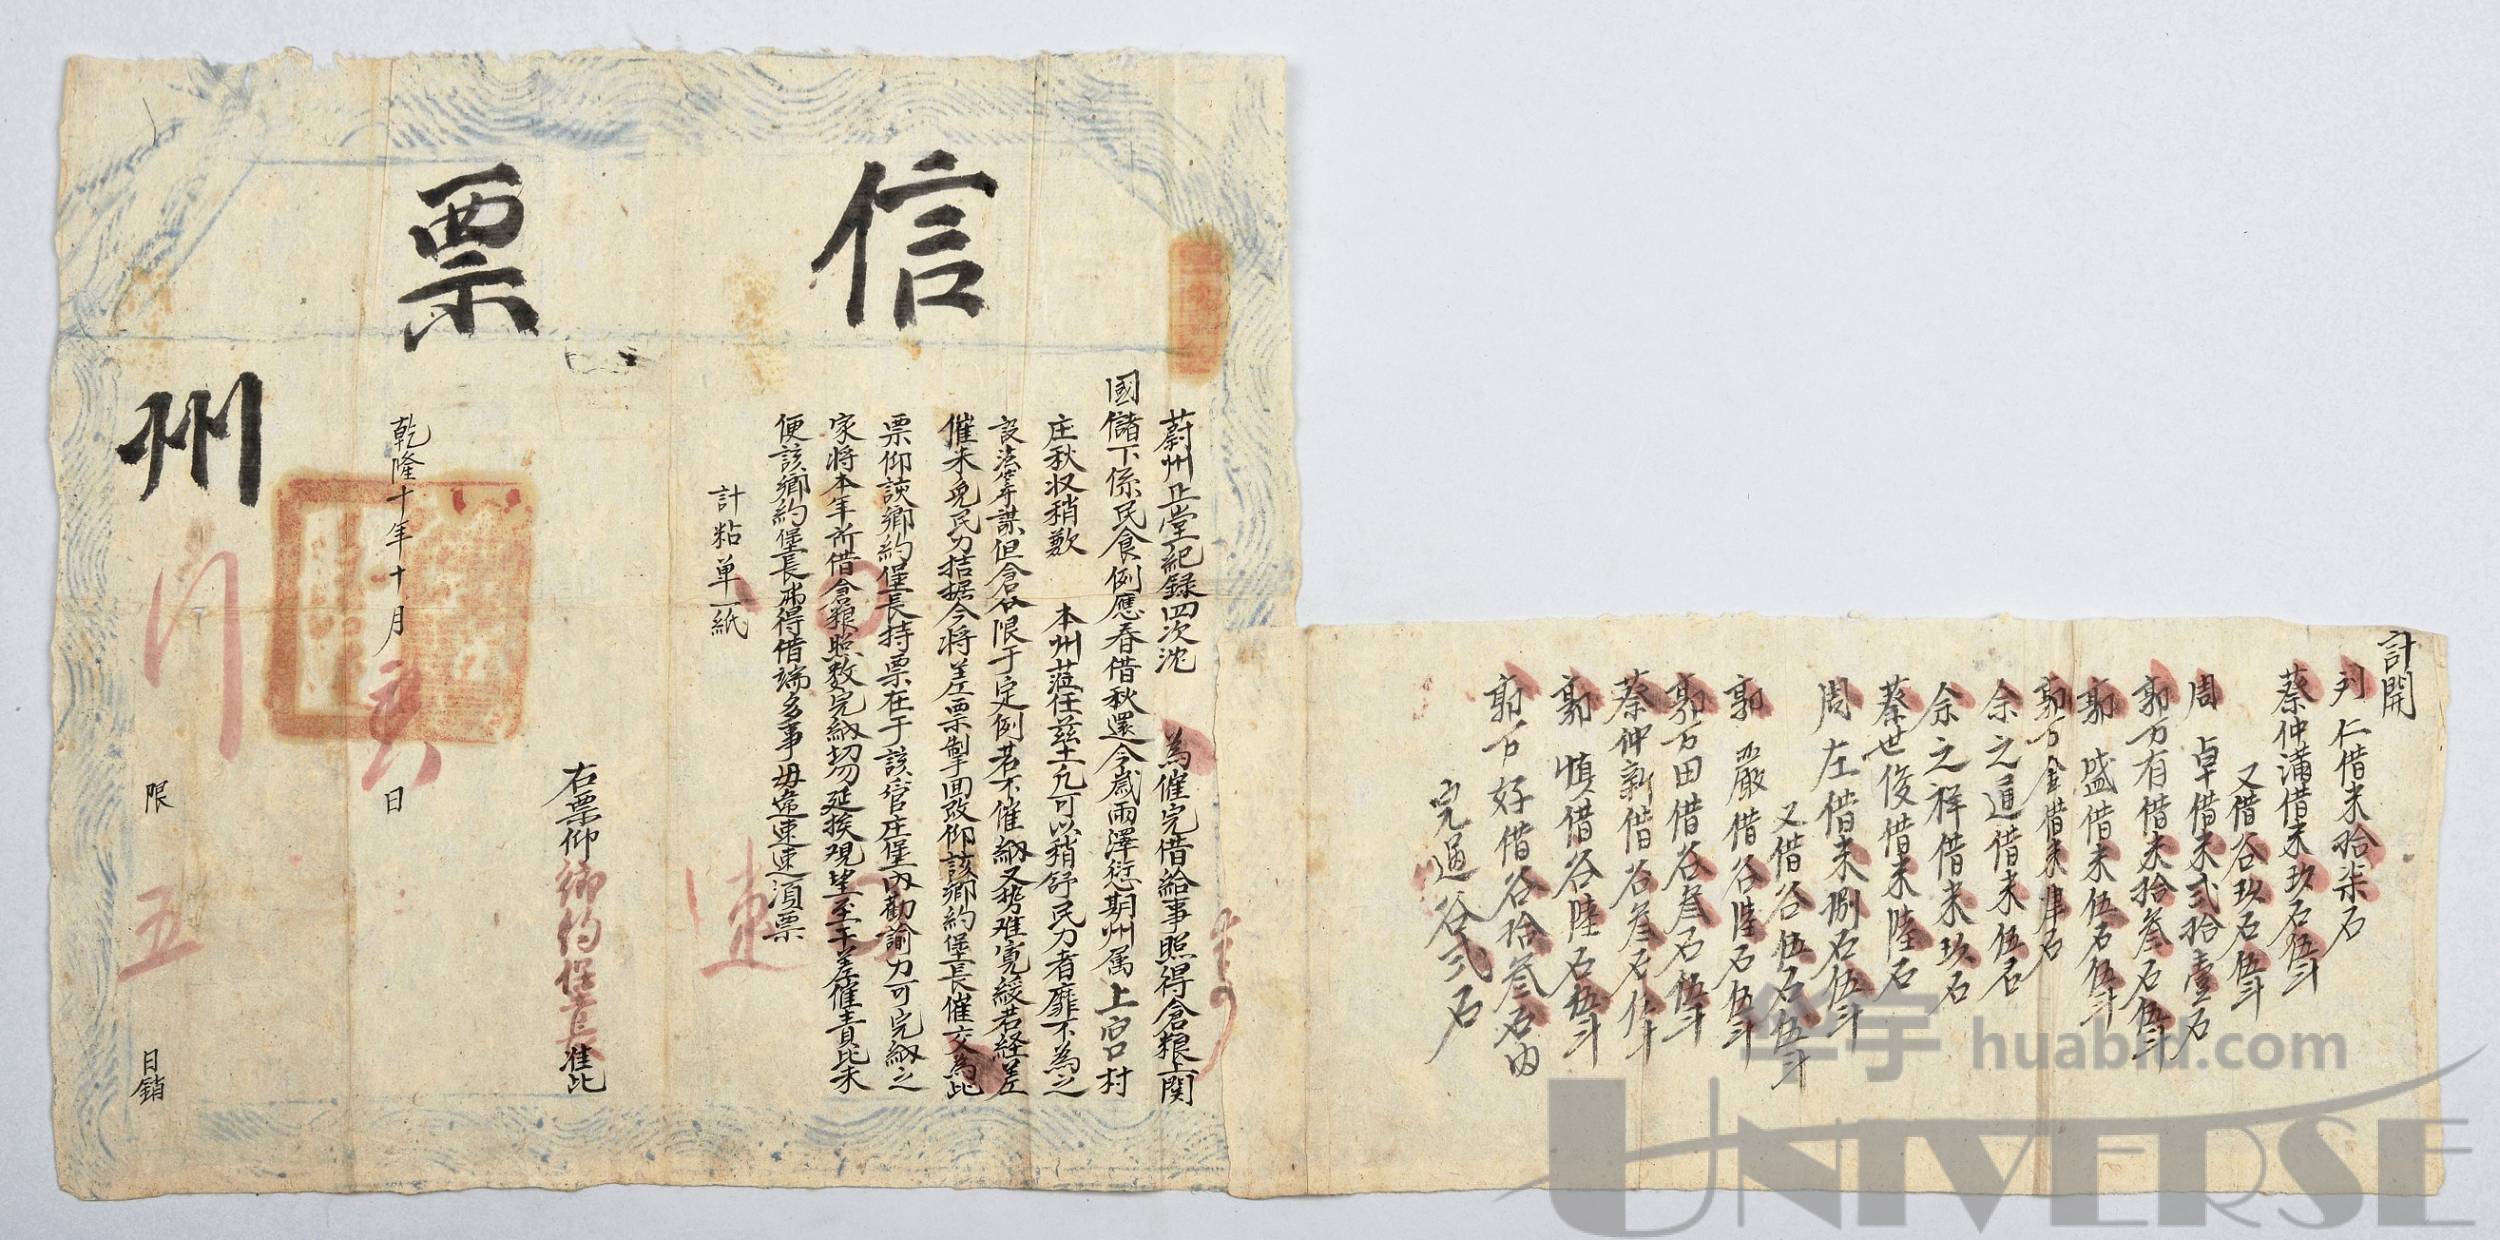 信票
蔚州正堂紀録四次沈 為催完借給事照得倉粮上関
國儲下係民食例應春借秋還今歲雨澤愆期州属上宫村
庄秋収稍歉 本州蒞任兹土凢可以稍舒民力者靡不為之
設法筹謀但倉谷限于定例若不催納又势难寛緩若経差
催未免民力拮据今将差票掣回改仰該鄉約堡長催交為此
票仰該鄉約堡長持票在于該官庄堡内勸諭力可完納之
家将本年所借倉粮照数完納切勿延挨观望至干差催責比未
便該鄉約堡長弗得借端多事毋違速速湏票
計粘单一紙
速
右票仰鄉約堡長准此
乾隆十年十月 日
州
限 五 日銷
計開
刘仁借米拾柒石
蔡仲满借米玖石伍斗
又借谷玖石伍斗
周卓借米弍拾壹石
郭万有借米拾叁石伍斗
郭盛借米伍石伍斗
郭万金借米肆石
余之道借米伍石
余之祥借米玖石
蔡世俊借米陸石
周左借米捌石伍斗
又借谷伍石伍斗
郭嚴借谷陸石伍斗
郭万田借谷叁石伍斗
蔡仲新借谷叁石伍斗
郭慎借谷陸石伍斗
郭万好借谷拾叁石内
完過谷弍石
华宇 huabid.com
UNIVERSE